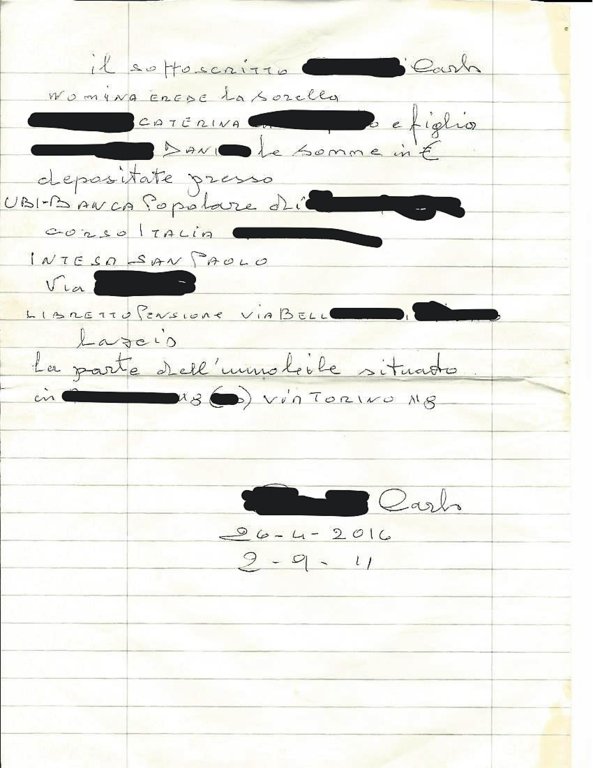 il sottoscritto Carlo
NOMINA EREDE la sorella
CATERINA e figlio
DANI le somme in €
depositate presso
UBI-BANCA Popolare di
CORSO ITALIA
INTESA SAN PAOLO
Via
LIBRETTO PENSIONE VIA BELL
Lascio
la parte dell'immobile situato
in VIA TORINO
Carlo
26-4-2016
2-9-11